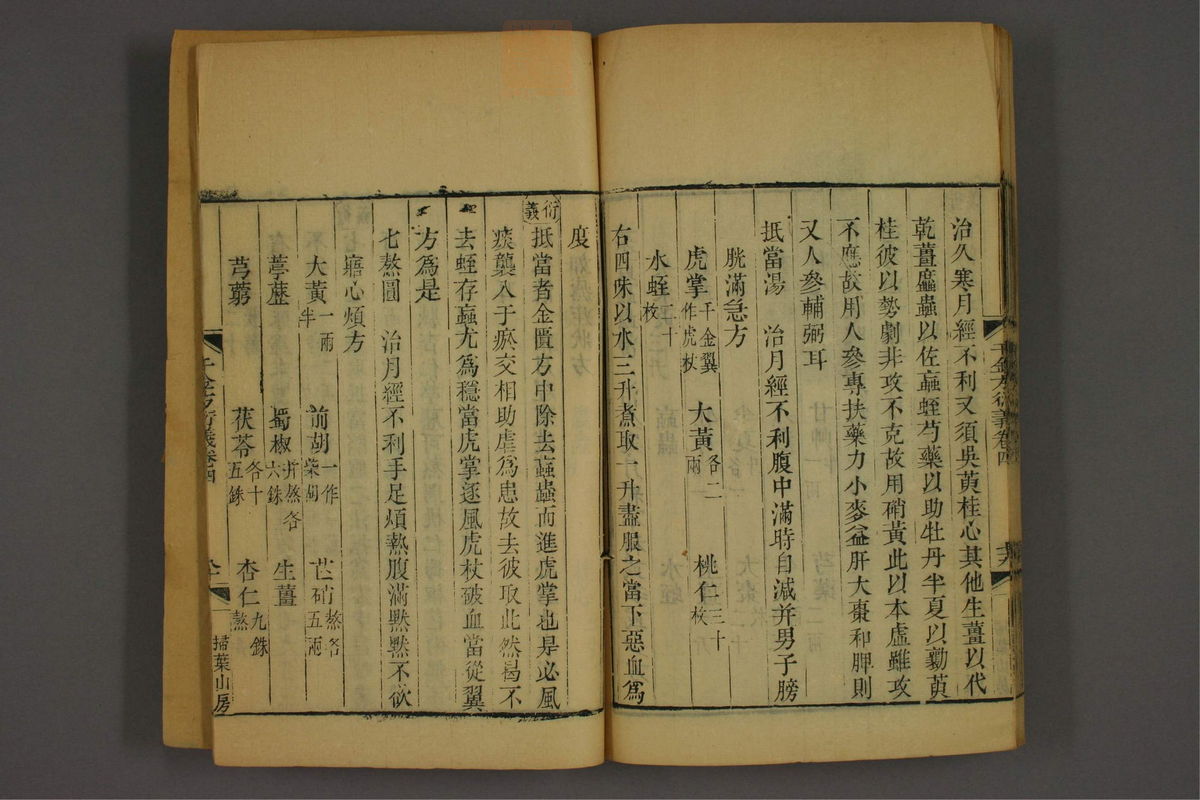 治久寒月經不利又須吳萸桂心其他生薑以代
乾薑䗪蟲以佐蝱蛭芍藥以助牡丹半夏以勷萸
桂彼以勢劇非攻不克故用硝黃此以本虛雖攻
不應故用人參專扶藥力小麥益肝大棗和脾則
又人參輔弼耳
抵當湯　治月經不利腹中滿時自減并男子膀
胱滿急方
虎掌千金翼作虎杖　大黃各二兩　桃仁三十枚
水蛭二十枚
右四味以水三升煮取一升盡服之當下惡血爲
度
衍義抵當者金匱方中除去蝱蟲而進虎掌也是必風
痰襲入于瘀交相助虐爲患故去彼取此然曷不
去蛭存蝱尤爲穩當虎掌逐風虎杖破血當從翼
方爲是
七熬圓　治月經不利手足煩熱腹滿黙黙不欲
寤心煩方
大黃一兩半　前胡一作柴胡　芒硝熬各五兩
葶藶　蜀椒并熬各六銖　生薑
芎藭　茯苓各十五銖　杏仁九銖熬
千金方衍義卷四
掃葉山房
千金方衍義卷四